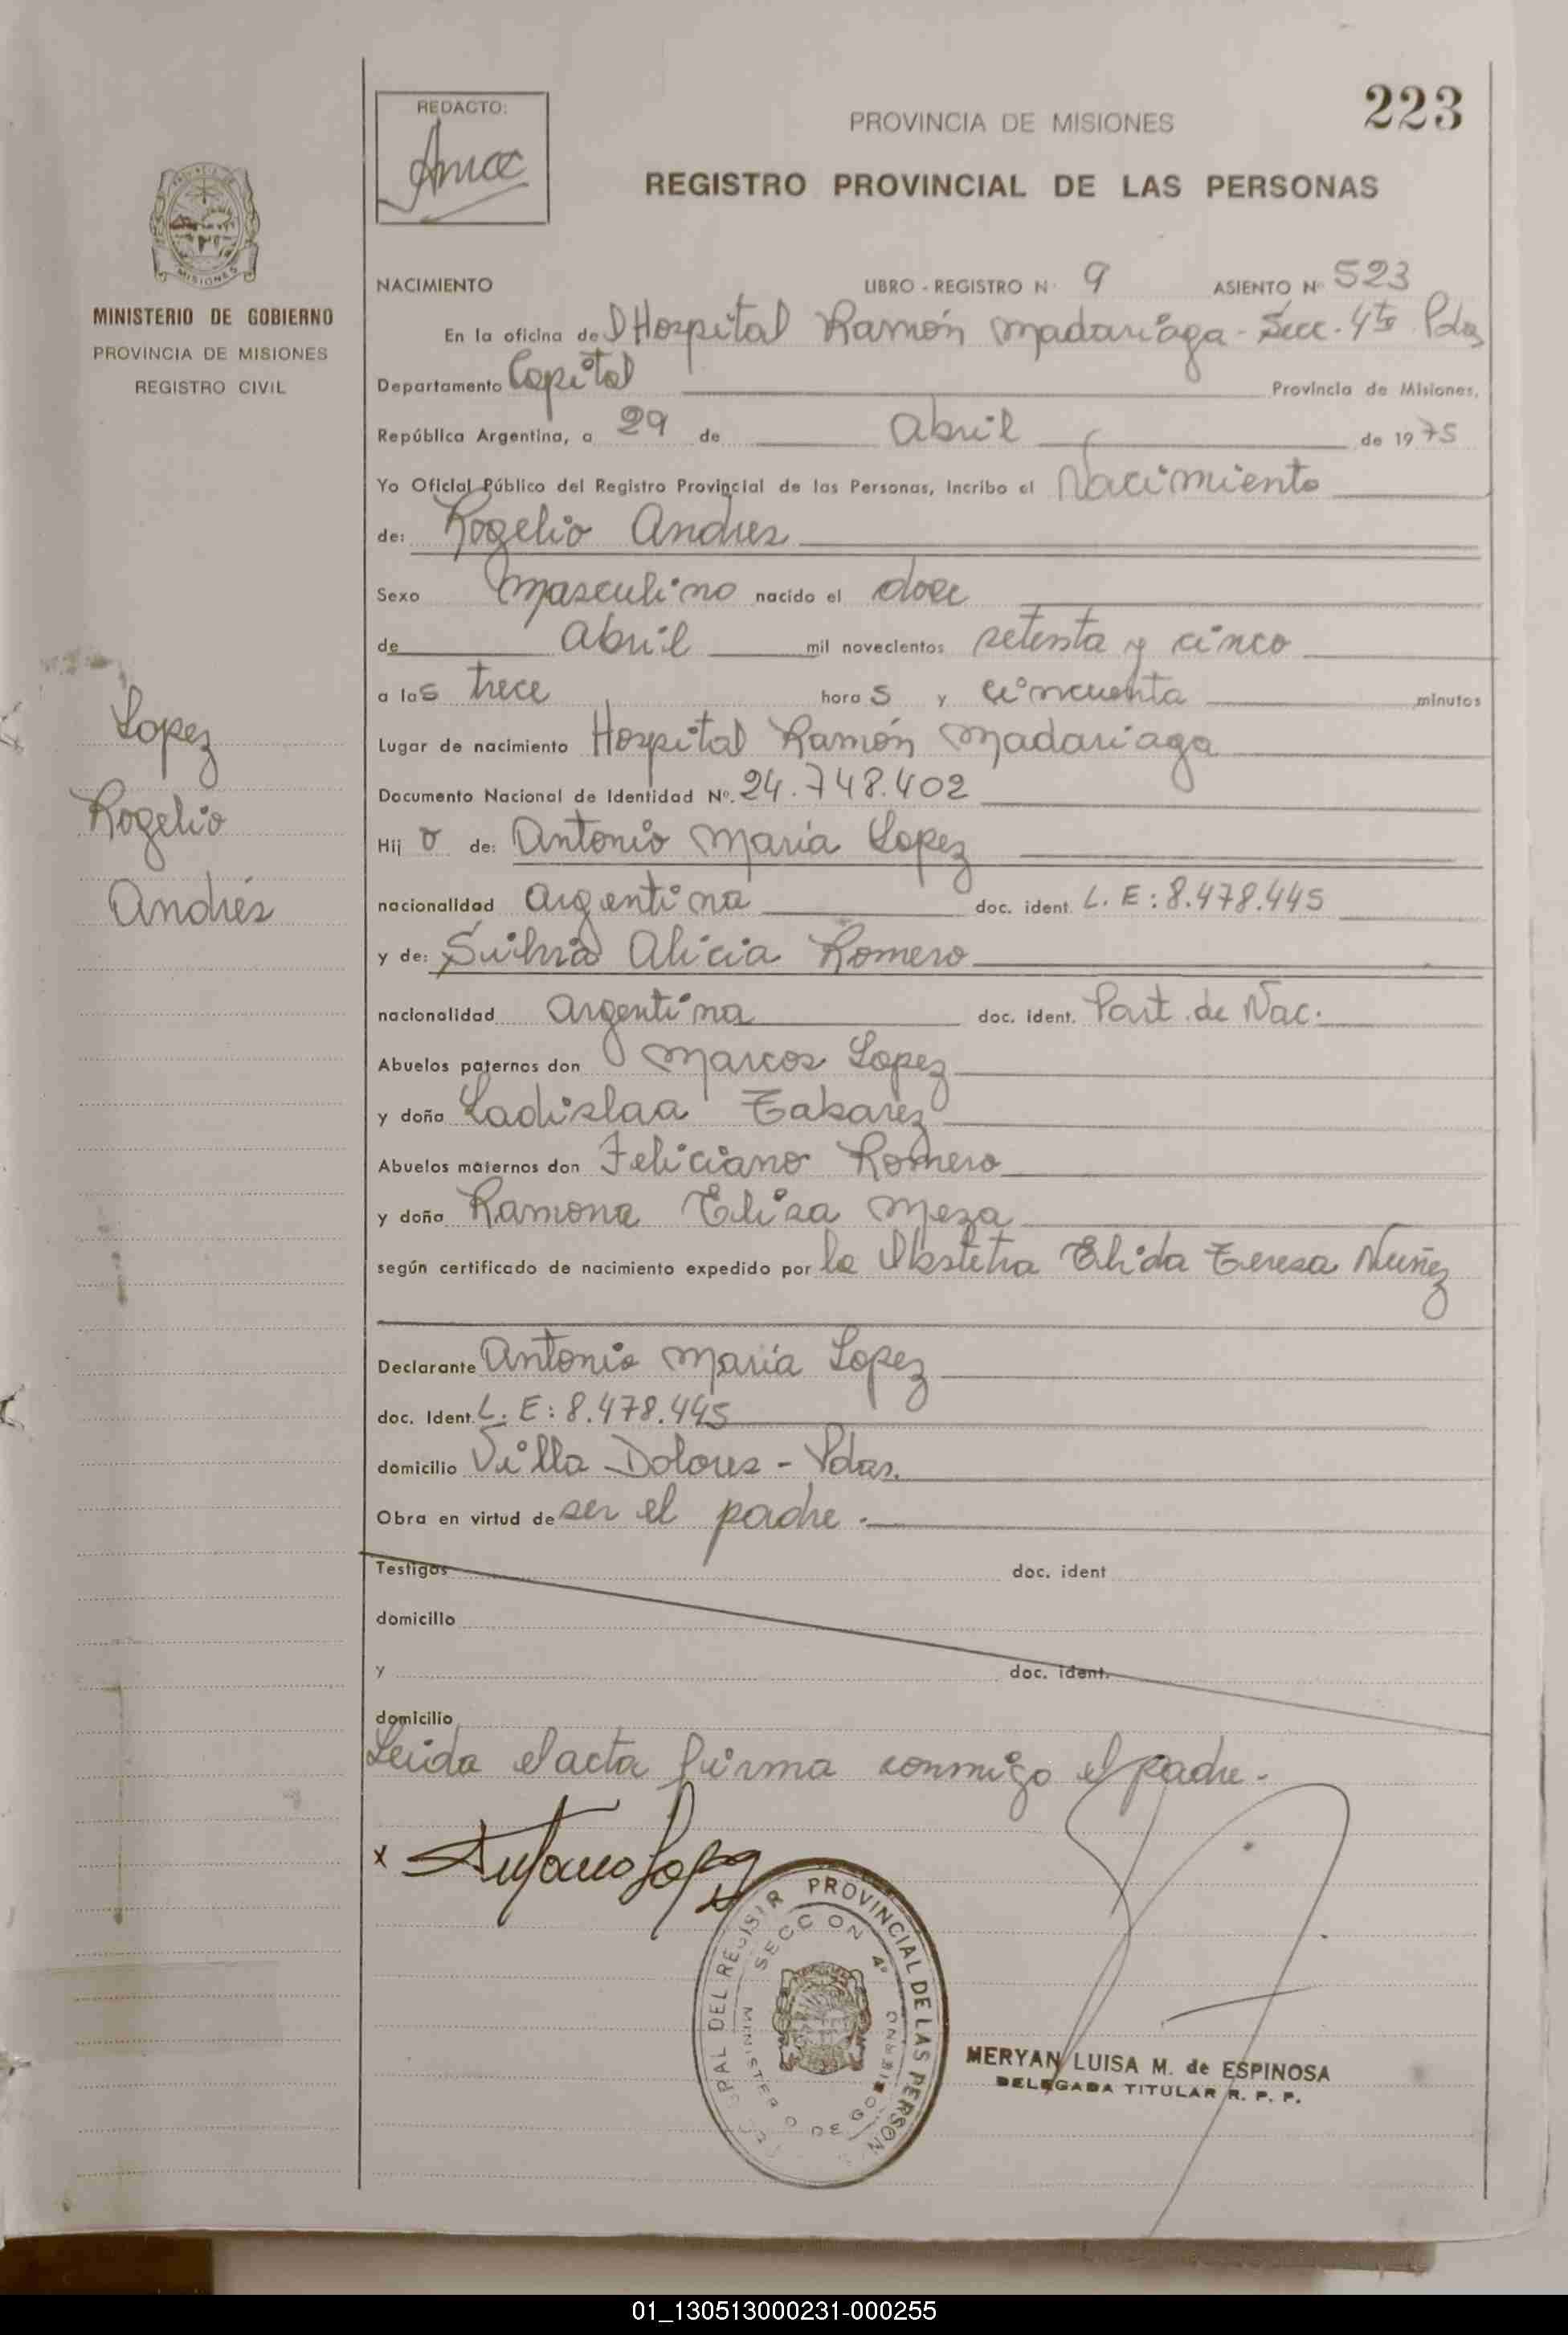 223
REDACTO:
PROVINCIA DE MISIONES
REGISTRO PROVINCIAL DE LAS PERSONAS
MISIONES
MINISTERIO DE GOBIERNO
PROVINCIA DE MISIONES
REGISTRO CIVIL
NACIMIENTO LIBRO - REGISTRO Nº 9 ASIENTO Nº 523
En la oficina del Hospital Ramón Madariaga - Secc. 4ta Pdas
Departamento Capital Provincia de Misiones,
República Argentina, a 29 de Abril de 1975
Yo Oficial Público del Registro Provincial de las Personas, Incribo el Nacimiento
de: Rogelio Andres
Sexo masculino nacido el doce
de abril mil novecientos setenta y cinco
a las trece horas y cincuenta minutos
Lugar de nacimiento Hospital Ramón Madariaga
Documento Nacional de Identidad Nº. 24.748.402
Hijo de: Antonio Maria Lopez
nacionalidad argentina doc. ident. L. E: 8.478.445
y de: Silvia Alicia Romero
nacionalidad argentina doc. ident. Part. de Nac.
Abuelos paternos don Marcos Lopez
y doña Ladislaa Tabarez
Abuelos maternos don Feliciano Romero
y doña Ramona Elisa Meza
según certificado de nacimiento expedido por la Obstetra Elida Teresa Nuñez
Declarante Antonio Maria Lopez
doc. Ident. L. E: 8.478.445
domicilio Villa Dolores - Pdas.
Obra en virtud de ser el padre.
Testigos doc. ident
domicilio
y doc. ident.
domicilio
Leida el acta firma conmigo el padre.
Lopez
Rogelio
Andrés
x Antonio Lopez
PROVINCIAL DE LAS PERSON
SECCION 4º
MINISTERIO DE GOBIERNO
MERYAN LUISA M. de ESPINOSA
DELEGADA TITULAR R. P. P.
01_130513000231-000255